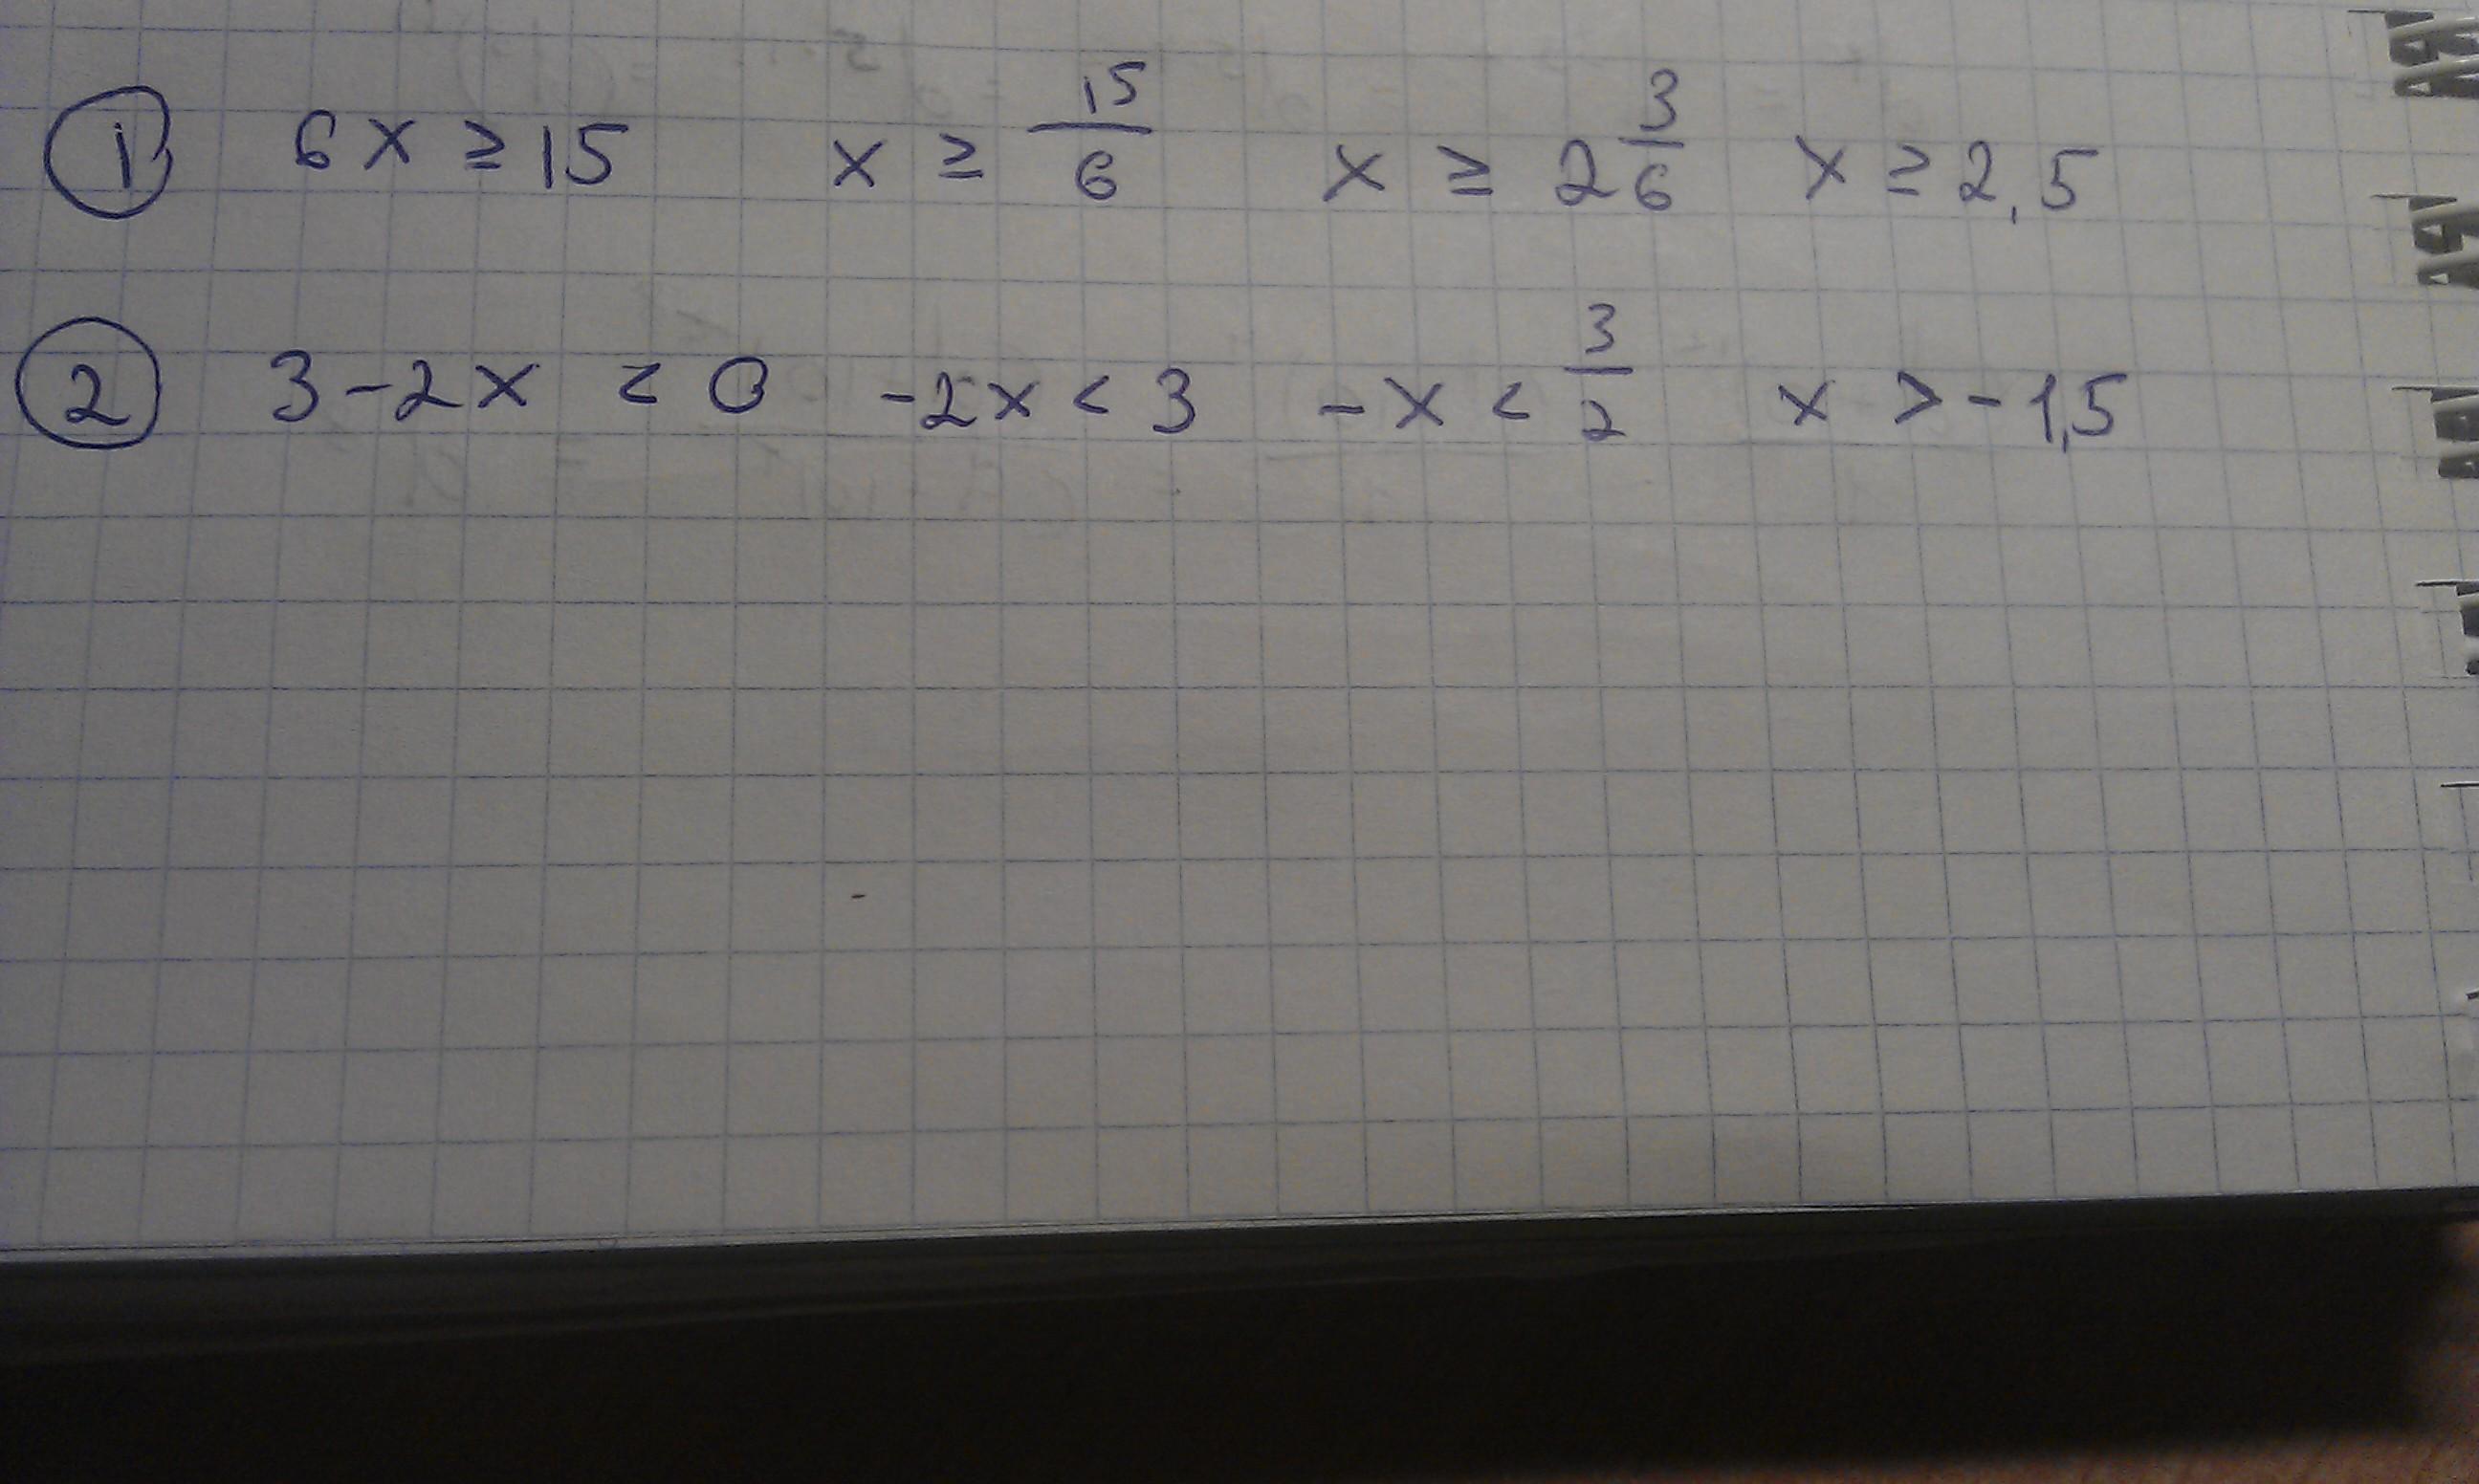 1 6x ≥ 15 x ≥ 15/6 x ≥ 2 3/6 x ≥ 2,5
2 3-2x < 0 -2x < 3 -x < 3/2 x > -1,5